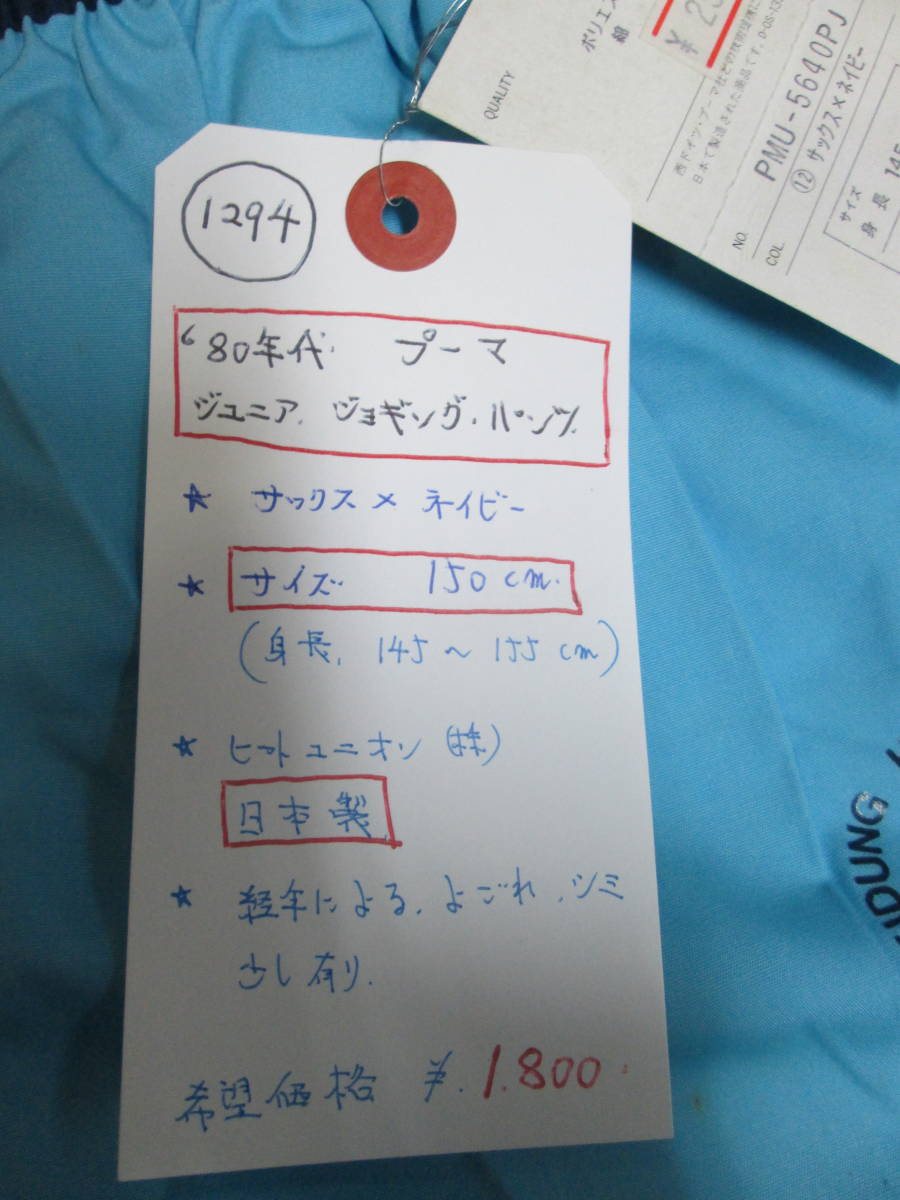 1294
'80年代 プーマ
ジュニア. ジョギング・パンツ
★ サックス × ネイビー
★ サイズ 150cm.
(身長, 145～155cm)
★ ヒットユニオン(株)
日本製
★ 経年による, よごれ, シミ
少し有り.
希望価格 ¥.1.800.
QUALITY
ポリエス
綿
西ドイツ・プーマ社との技術提携に
日本で製造された商品です。
NO. PMU-5640PJ
COL. ⑫サックス×ネイビー
サイズ
身長 145
DUNG